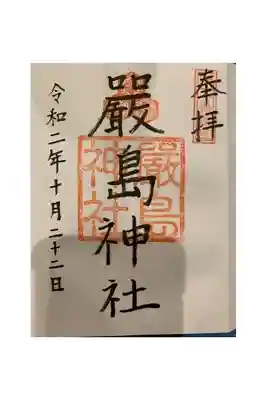 奉拝
嚴島神社
嚴島神社
令和二年十月二十二日